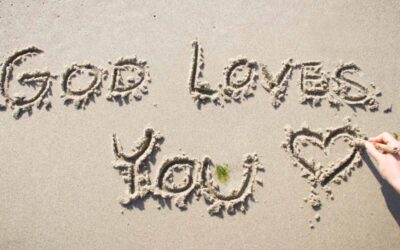 God Loves
You